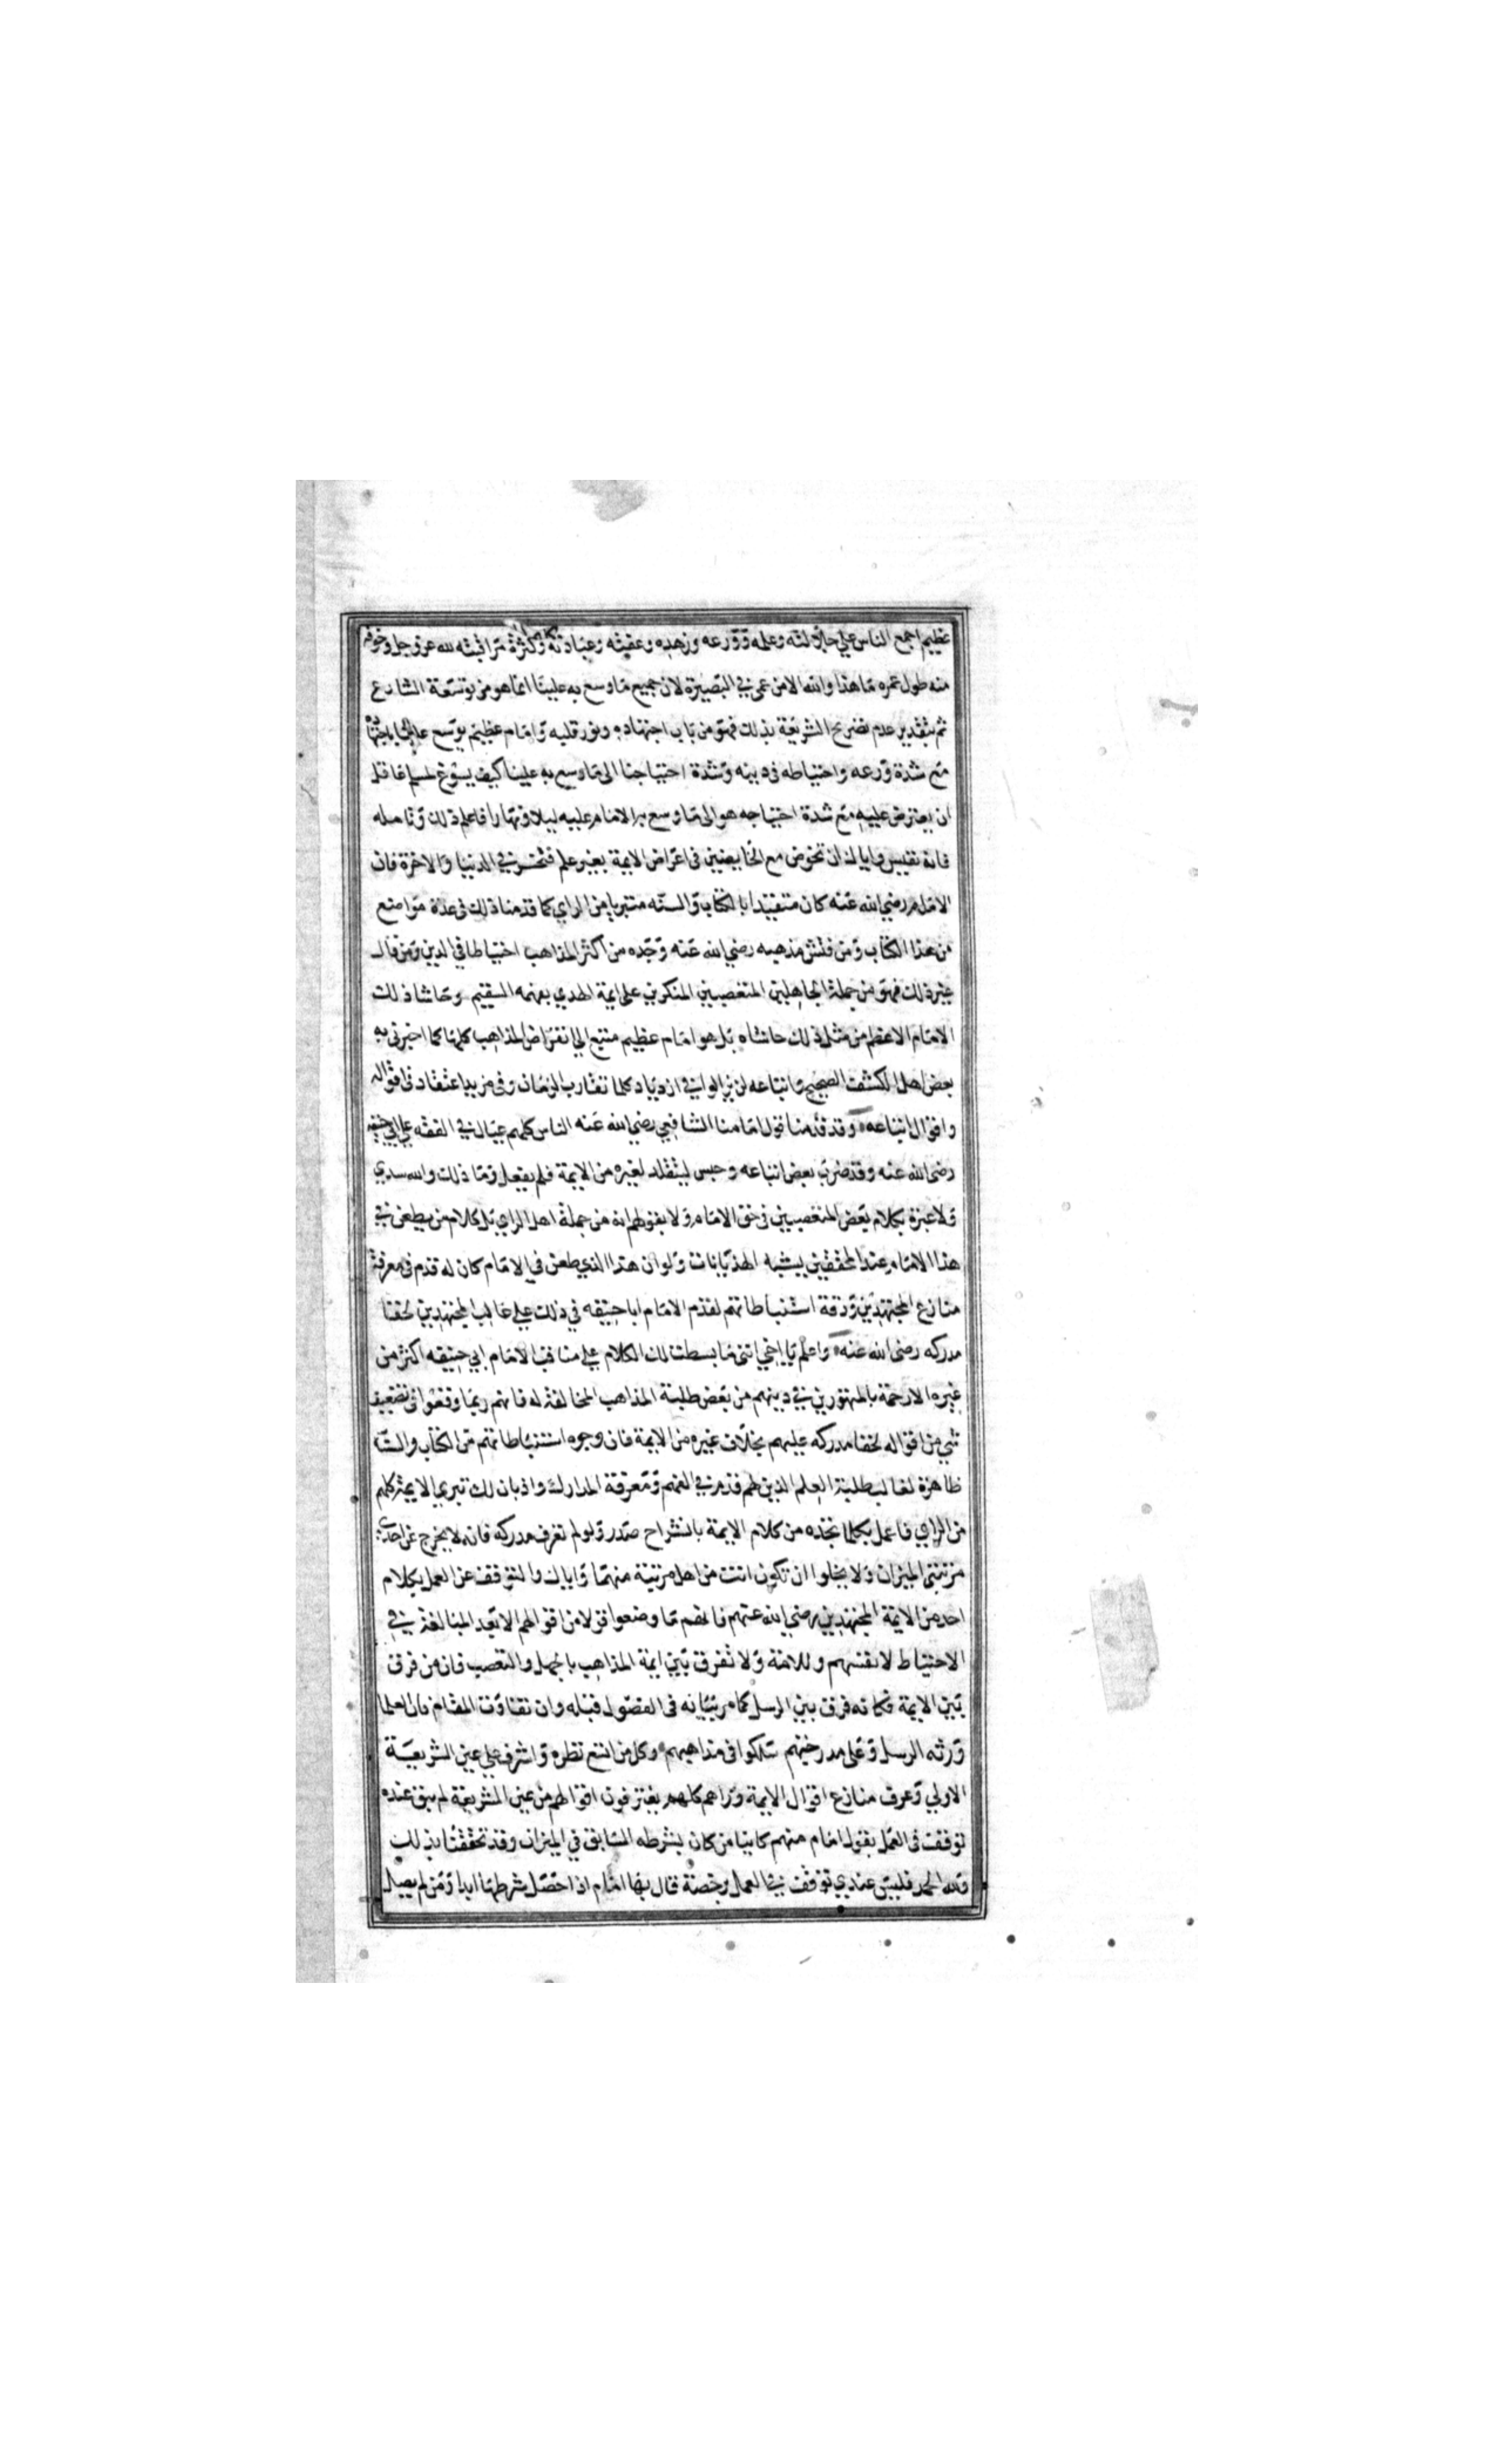 عظيم اجمع الناس علي جلالته وعلمه وورعه وزهده وعفته وعبادته وكثرة مراقبته لله عز وجل وخوفه
منه طول عمره ما هذا والله الا من عمي في البصيرة لان جميع ما وسع به علينا انما هو من توسعة الشارع
ثم بتقدير عدم تصريح الشريعة بذلك فهو من باب اجتهاده ونور قلبه وامام عظيم يوسع على باجتهاده
مع شدة ورعه واحتياطه في دينه وشدة احتياجنا الى ما وسع به علينا كيف يسوغ لمسلم عاقل
ان يعترض عليه مع شدة احتياجه هو الى ما وسع به الامام عليه ليلا ونهارا فاعلم ذلك وتامله
فانه نفيس واياك ان تخوض مع الخايضين في اعراض الايمة بغير علم فتخسر في الدنيا والاخرة فان
الامام رضي الله عنه كان متقيدا بالكتاب والسنه متبريا من الراي كما قدمنا ذلك في عدة مواضع
من هذا الكتاب ومن فتش مذهبه رضي الله عنه وجده من اكثر المذاهب احتياطا في الدين ومن قال
غير ذلك فهو من جملة الجاهلين المتعصبين المنكرين على ايمة الهدي بفهمه السقيم وحاشا ذلك
الامام الاعظم من مثل ذلك حاشاه بل هو امام عظيم متبع الي انقراض المذاهب كلها كما اخبرني به
بعض اهل الكشف الصحيح واتباعه لن يزالوا في ازدياد كلما تقارب الزمان وفي مزيد اعتقاد في اقواله
واقوال اتباعه وقد قدمنا قول امامنا الشافعي رضي الله عنه الناس كلهم عيال في الفقه علي ابي حنيفه
رضي الله عنه وقد ضرب بعض اتباعه وحبس ليقلد لغيره من الايمة فلم يفعل وما ذلك والله سدي
ولا عبرة بكلام بعض المتعصبين في حق الامام ولا بقولهم انه من جملة اهل الراي بل كلام من يطعن في
هذا الامام عند المحققين يشبه الهذيانات ولو ان هذا الذي طعن في الامام كان له قدم في معرفة
منازع المجتهدين ودقة استنباطاتهم لقدم الامام ابا حنيفه في ذلك علي غالب المجتهدين لخفا
مدركه رضي الله عنه واعلم يا اخي انني ما بسطت لك الكلام علي مناقب الامام ابي حنيفه اكثر من
غيره الا رحمة بالمتهورين في دينهم من بعض طلبة المذاهب المخالفة له فانهم ربما وقعوا في تضعيف
شي من اقواله لخفا مدركه عليهم بخلاف غيره من الايمة فان وجوه استنباطاتهم من الكتاب والسنة
ظاهرة لغالب طلبة العلم الذين لهم قدم في الفهم ومعرفة المدارك واذ بان لك تبري الايمة كلهم
من الراي فاعمل بكلما تجده من كلام الايمة بانشراح صدر ولو لم تعرف مدركه فانه لا يخرج عن احدي
مرتبتي الميزان ولا يخلوا ان تكون انت من اهل مرتبة منهما واياك والتوقف عن العمل بكلام
احد من الايمة المجتهدين رضي الله عنهم فانهم ما وضعوا قولا من اقوالهم الا بعد المبالغة في
الاحتياط لانفسهم وللامة ولا تفرق بين ايمة المذاهب بالجهل والتعصب فان من فرق
بين الايمة فكانه فرق بين الرسل كما مر بيانه في الفصول قبله وان تفاوت المقام فان العلما
ورثه الرسل وعلى مدرجتهم سلكوا في مذاهبهم وكل من اتسع نظره واشرف علي عين الشريعة
الاولي وعرف منازع اقوال الايمة وراهم كلهم يغترفون اقوالهم من عين الشريعة لم يبق عنده
توقف في العمل بقول امام منهم كاينا من كان بشرطه السابق في الميزان وقد تحققنا بذلك
ولله الحمد فليس عندي توقف في العمل برخصة قال بها امام اذا حصل شرطها ابدا ومن لم يصل